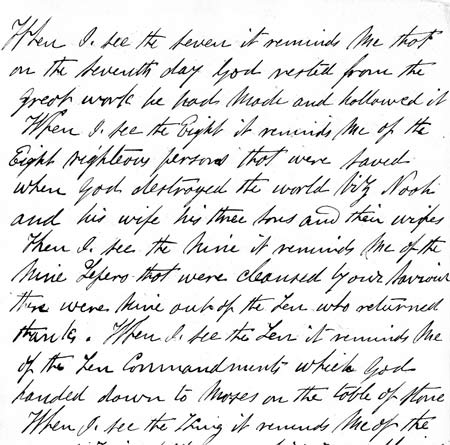 When I see the seven it reminds Me that
on the seventh day God rested from the
great work he had Made and hollowed it
When I see the Eight it reminds Me of the
Eight righteous persons that were saved
when God destroyed the world Viz Noah
and his wife his three sons and their wifes
When I see the Nine it reminds Me of the
Nine Lepers that were cleansed by our Saviour
there were Nine out of the Ten who returned
thanks. When I see the Ten it reminds Me
of the Ten Commandments which God
handed down to Moses on the table of stone
When I see the King it reminds Me of the